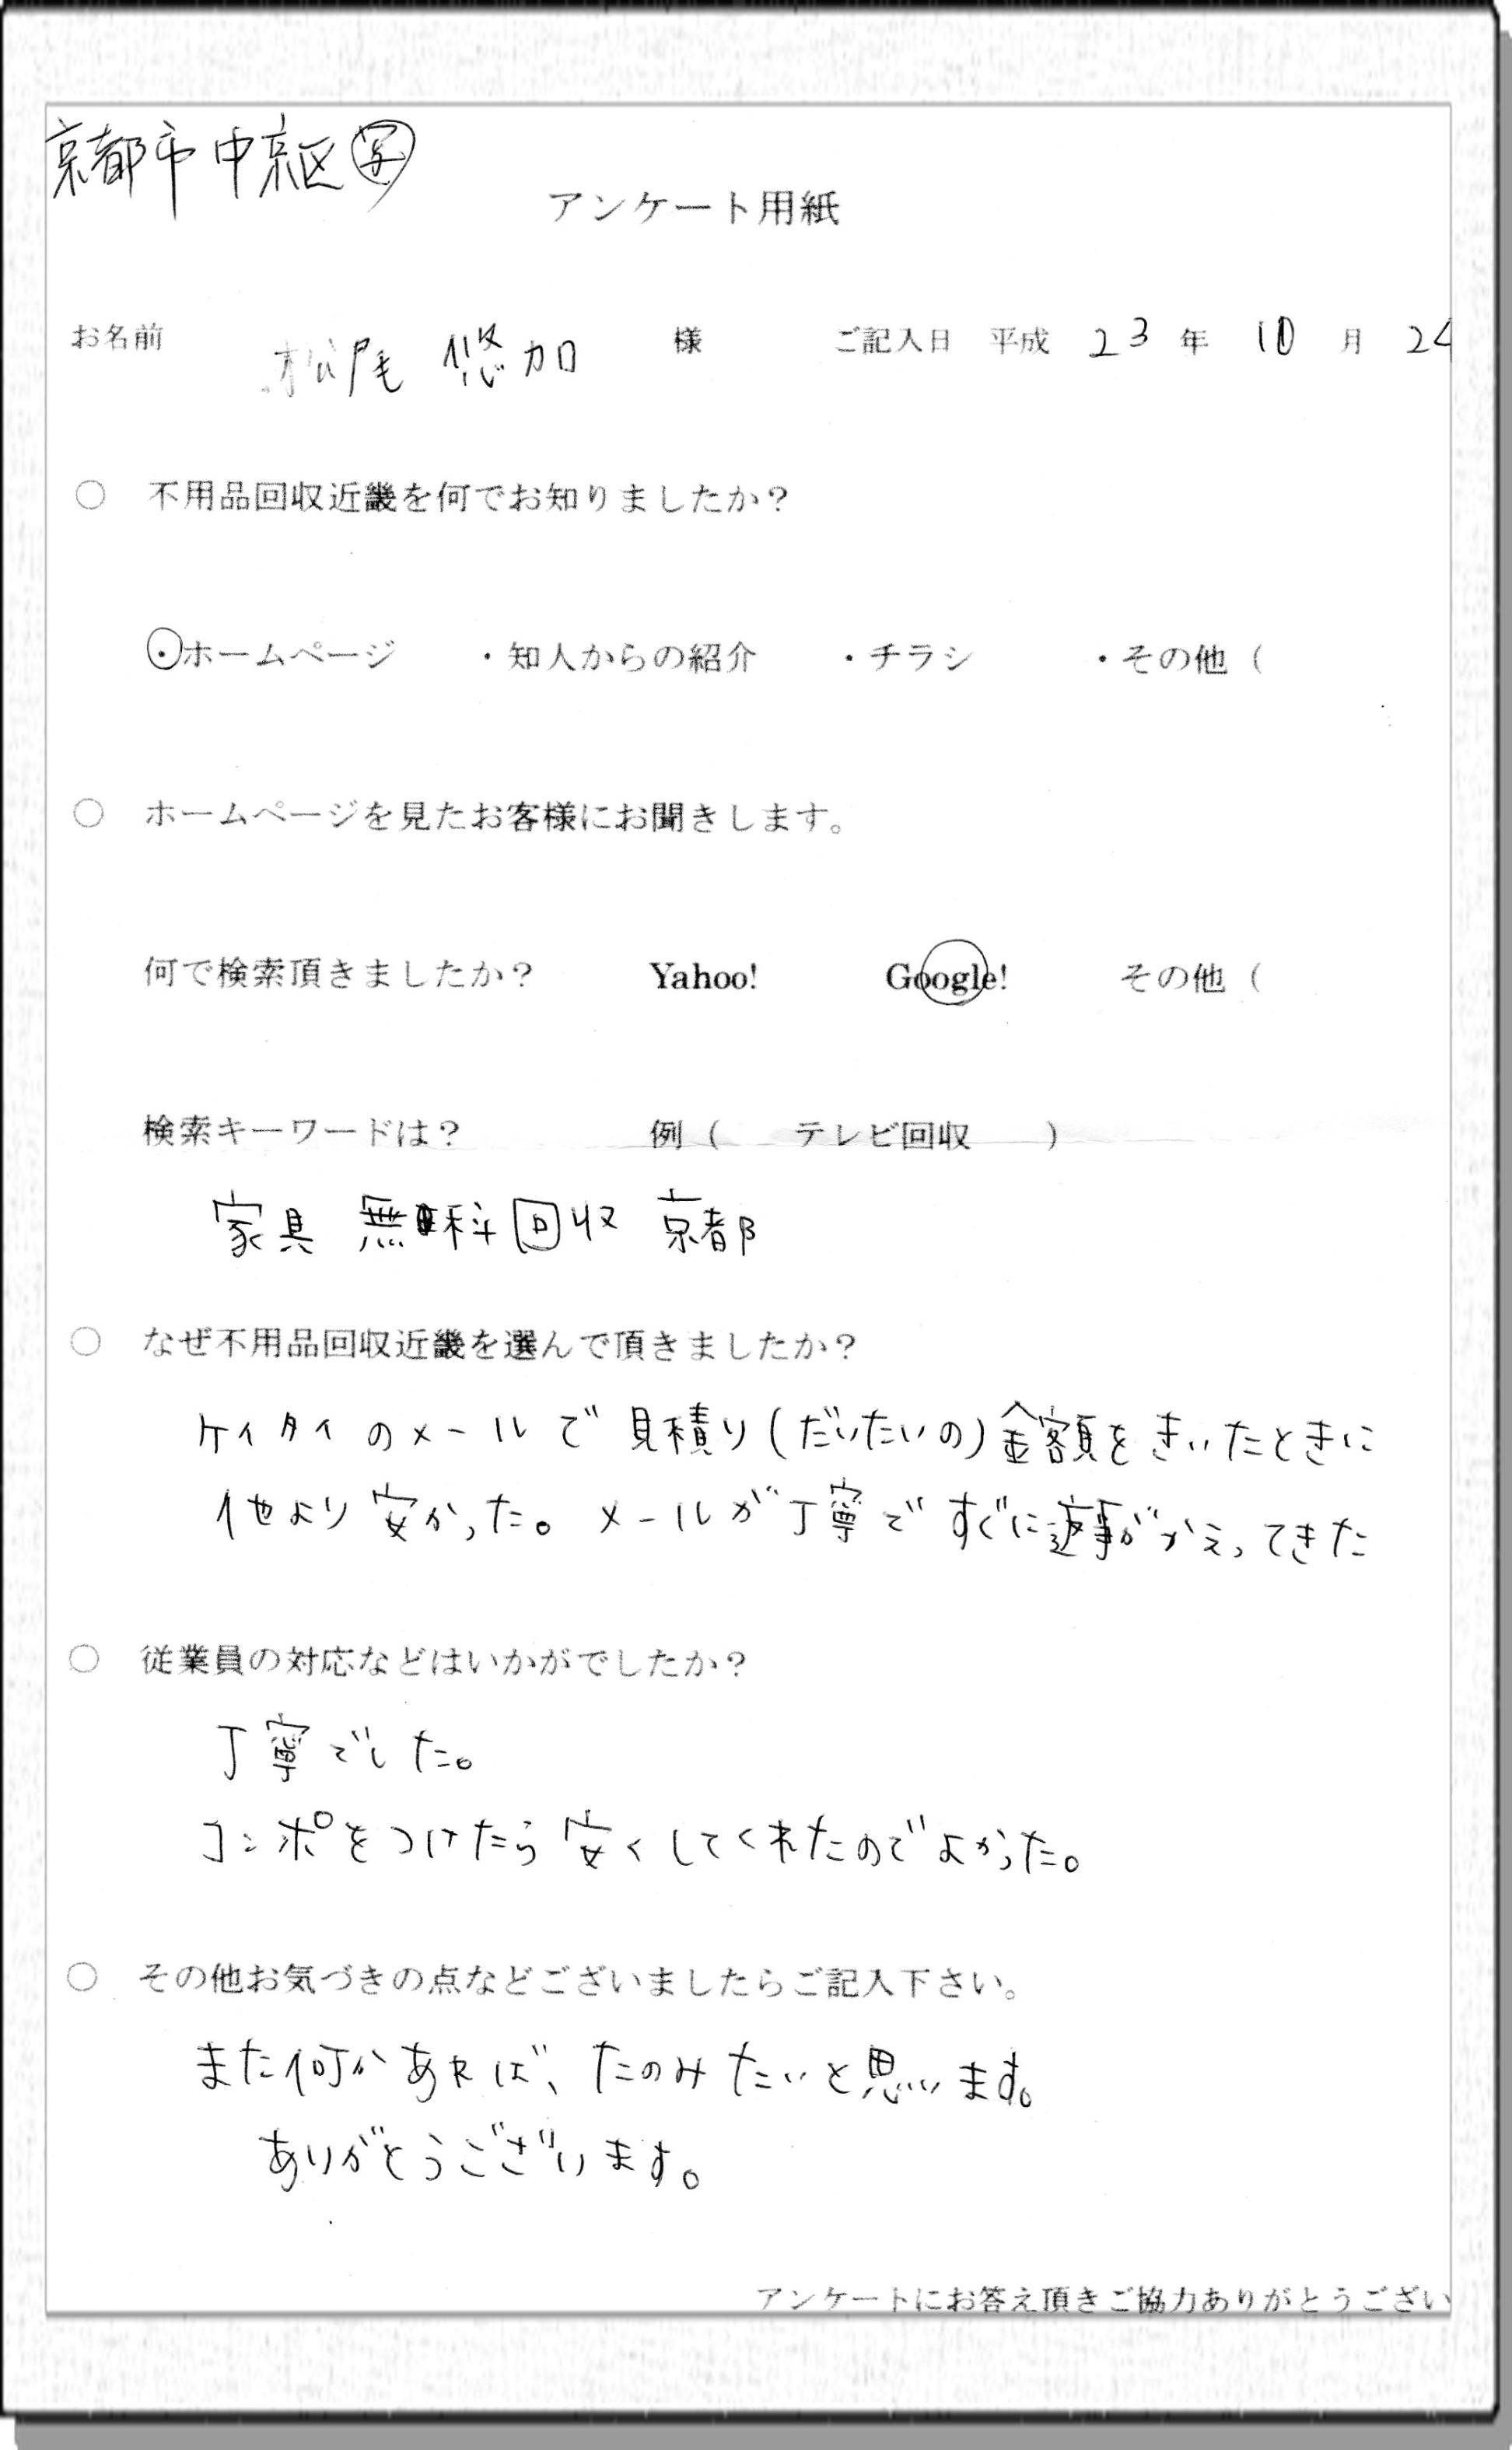 京都市中京区 写
アンケート用紙
お名前 松尾 悠加 様 ご記入日 平成 23 年 10 月 24
○ 不用品回収近畿を何でお知りましたか？
・ホームページ ・知人からの紹介 ・チラシ ・その他（
○ ホームページを見たお客様にお聞きします。
何で検索頂きましたか？ Yahoo! Google! その他（
検索キーワードは？ 例（ テレビ回収 ）
家具 無料回収 京都
○ なぜ不用品回収近畿を選んで頂きましたか？
ケイタイのメールで見積り(だいたいの)金額をきいたときに
他より安かった。メールが丁寧ですぐに返事がかえってきた
○ 従業員の対応などはいかがでしたか？
丁寧でした。
コンポをつけたら安くしてくれたのでよかった。
○ その他お気づきの点などございましたらご記入下さい。
また何かあれば、たのみたいと思います。
ありがとうございます。
アンケートにお答え頂きご協力ありがとうござい